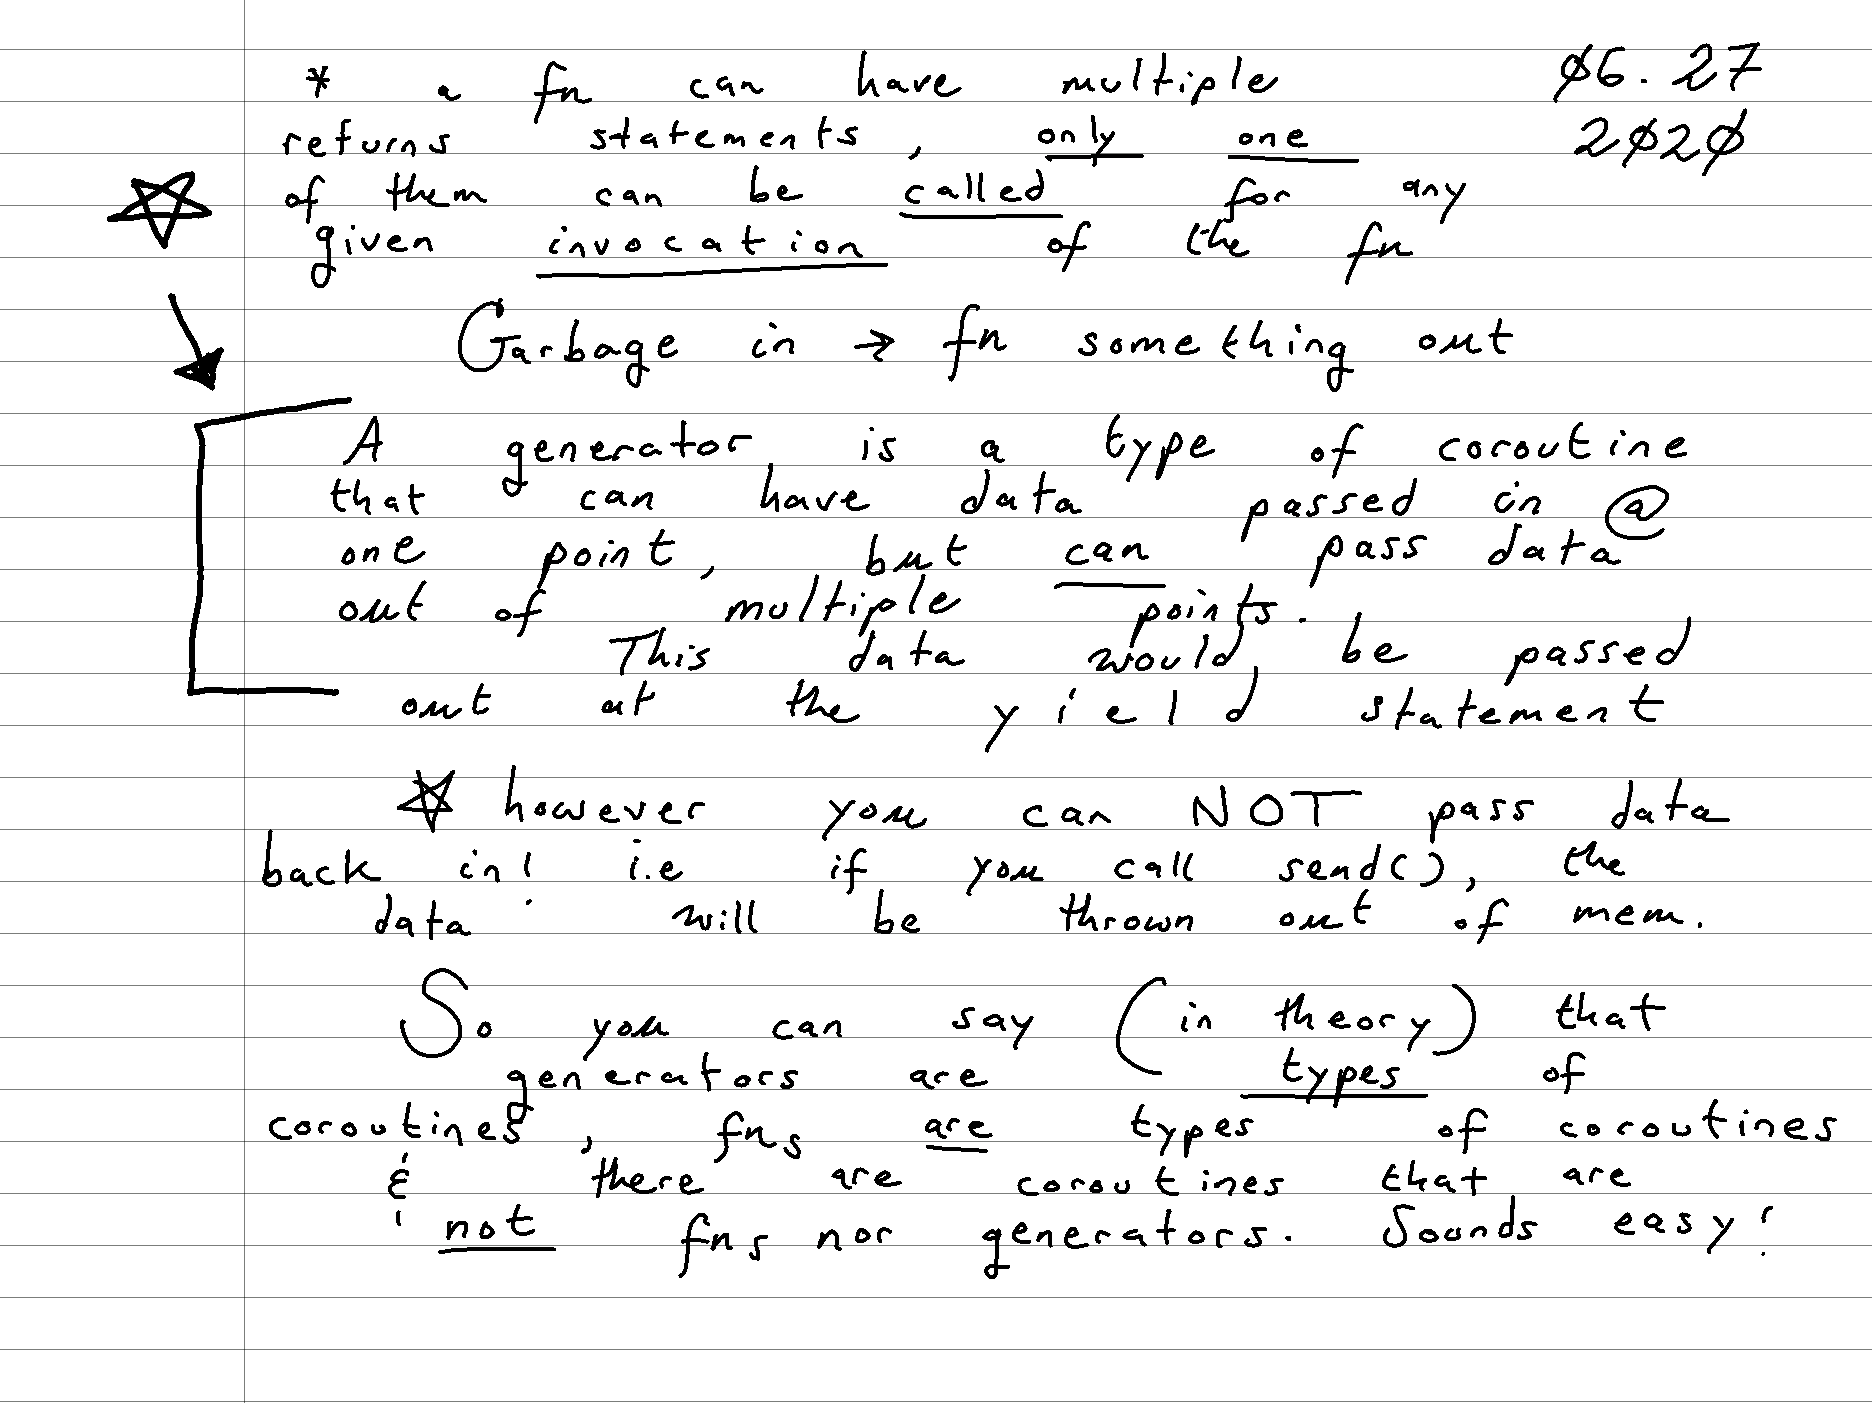 * a fn can have multiple
06.27
returns statements, only one
2020
of them can be called for any
given invocation of the fn
Garbage in → fn something out
A generator is a type of coroutine
that can have data passed in @
one point, but can pass data
out of multiple points.
This data would be passed
out at the yield statement
☆ however you can NOT pass data
back in! i.e if you call send(), the
data will be thrown out of mem.
So you can say (in theory) that
generators are types of
coroutines, fns are types of coroutines
& there are coroutines that are
not fns nor generators. Sounds easy!